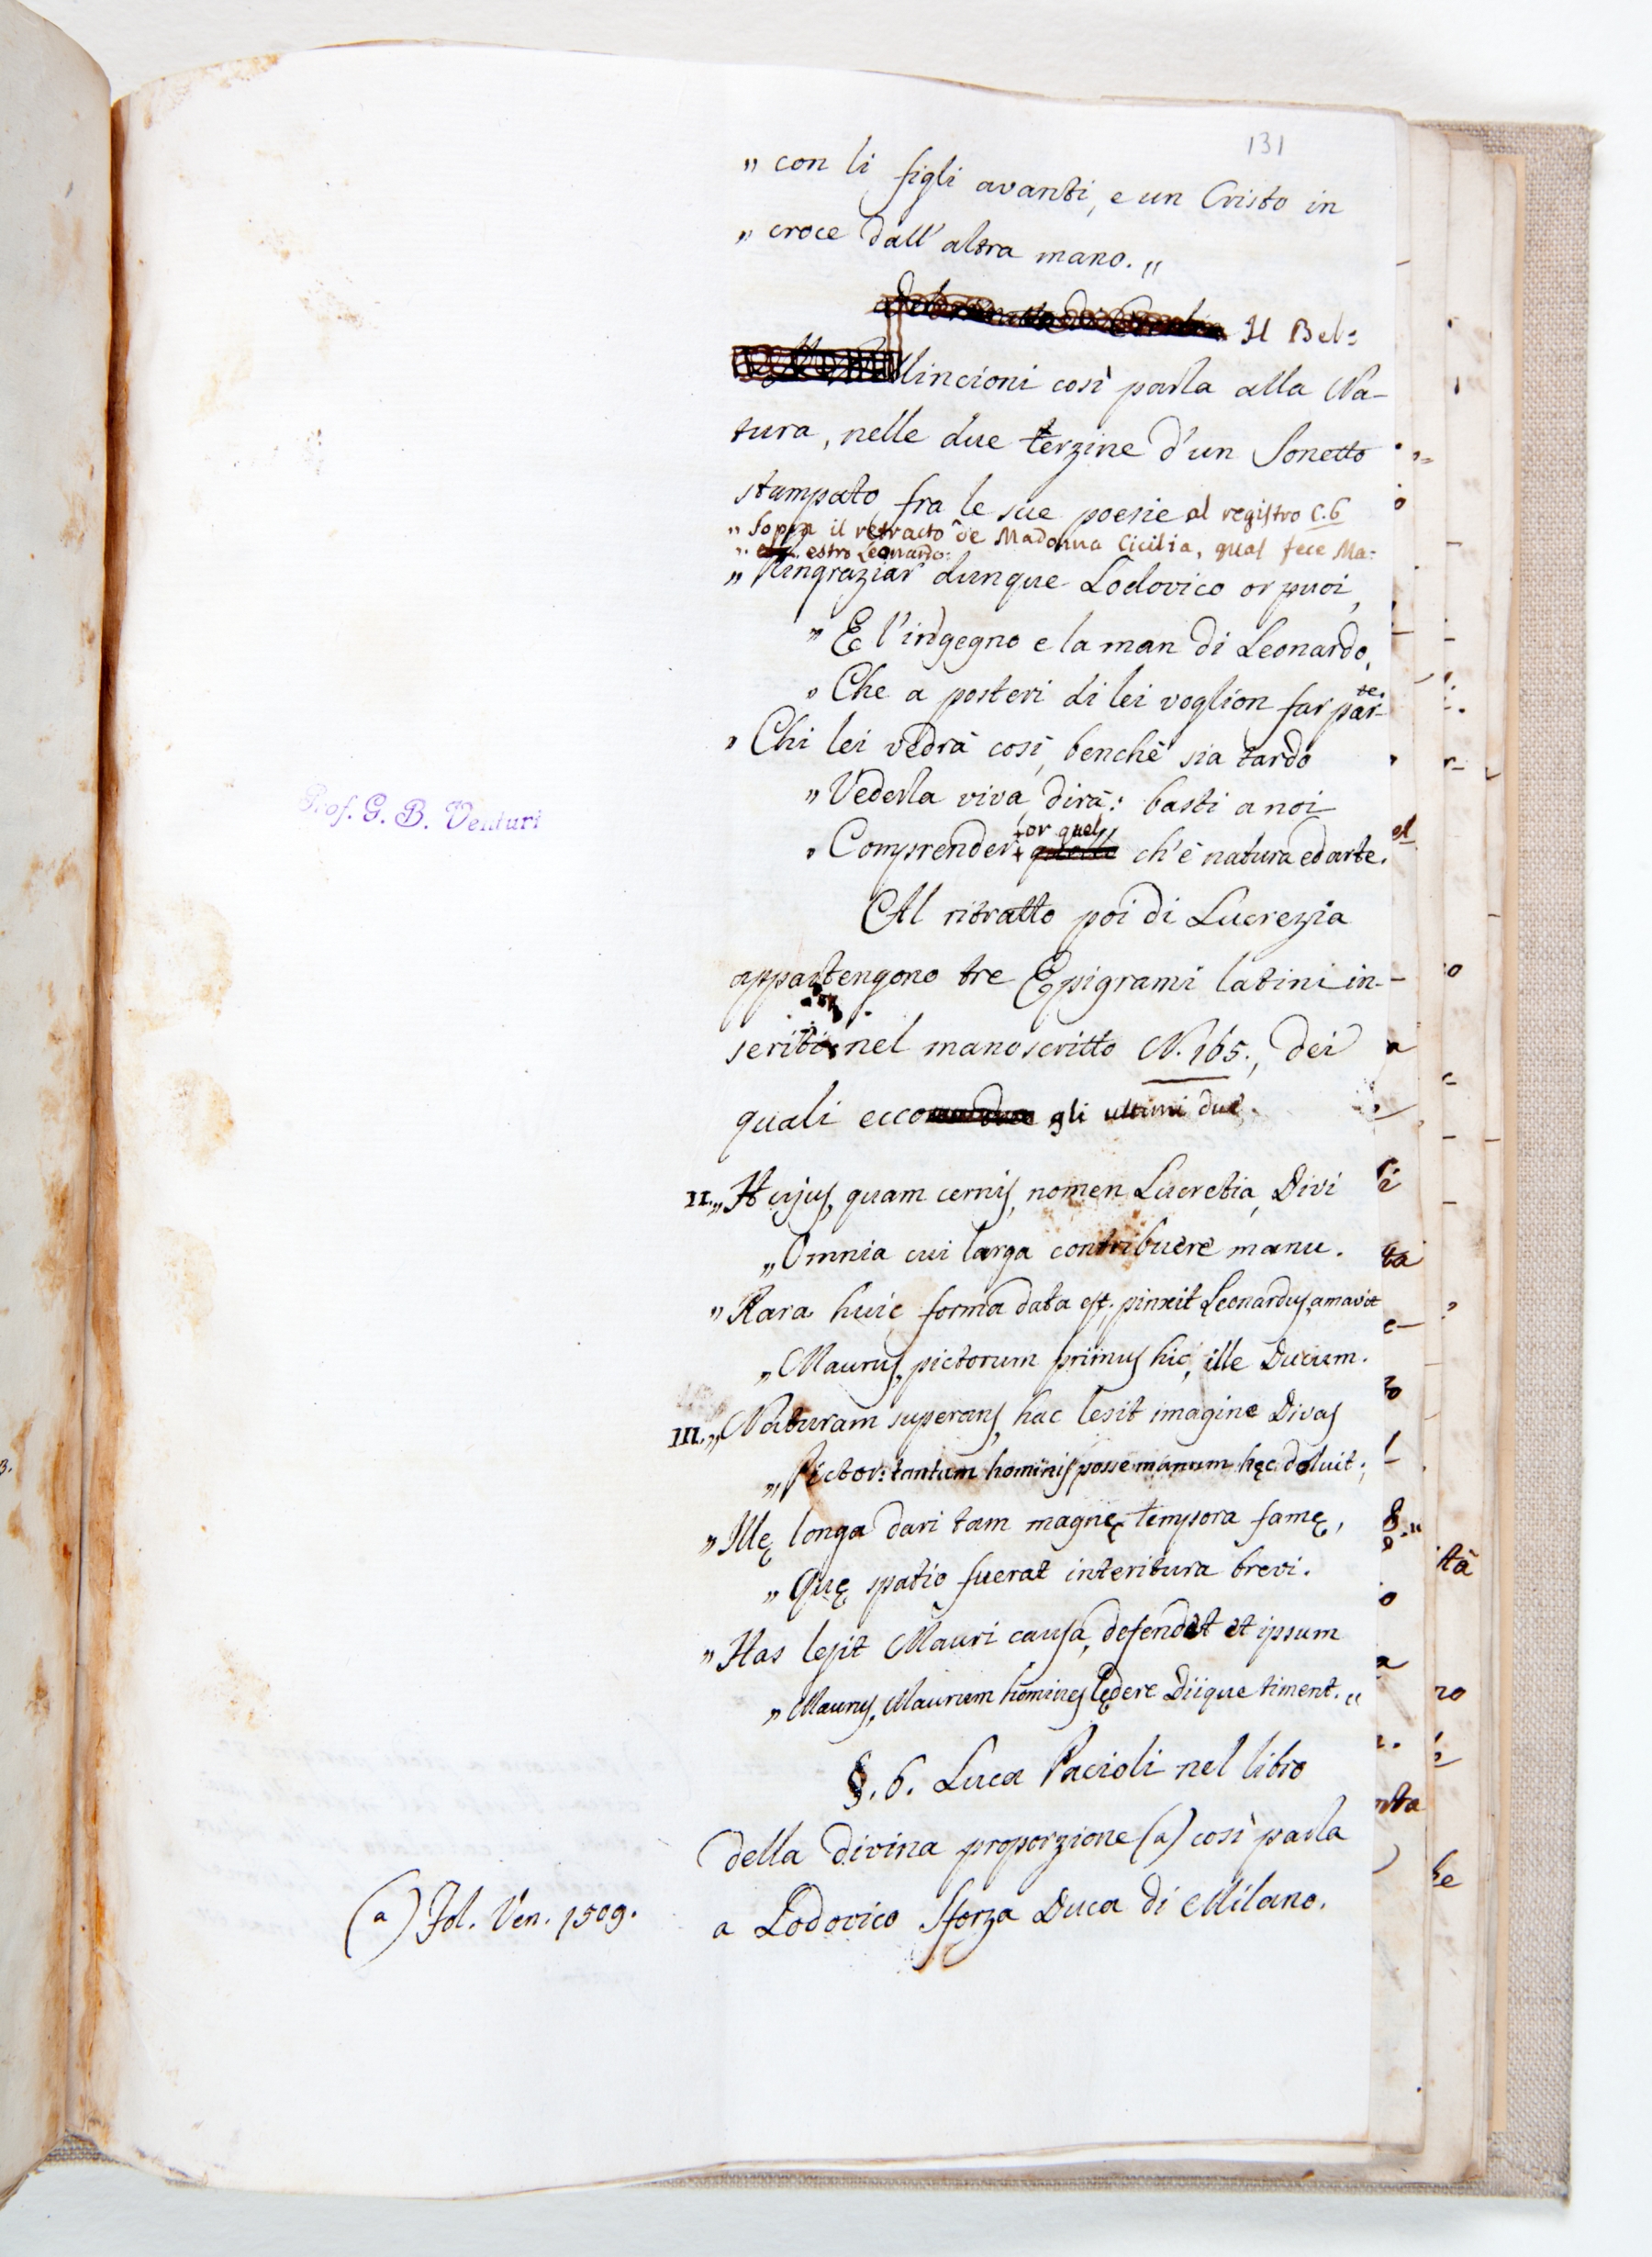 131
„ con li figli avanti, e un Cristo in
„ croce dall' altra mano. „
Il Bel=
lincioni così parla alla Na-
tura, nelle due terzine d'un Sonetto
stampato fra le sue poesie al registro C.6
„ Sopra il retracto de Madonna Cicilia, qual fece Ma=
„ estro Leonardo:
„ Ringraziar dunque Lodovico or puoi,
„ E l'ingegno e la man di Leonardo,
„ Che a posteri di lei voglion far parte.
„ Chi lei vedrà così, benchè sia tardo
„ Vederla viva, dirà: basti a noi
Prof. G. B. Venturi
„ Comprender or quel ch'è natura ed arte.
Al ritratto poi di Lucrezia
appartengono tre Epigrami latini in-
seriti nel manoscritto N. 165., dei
quali ecco gli ultimi due.
II. „ Hujus, quam cernis, nomen Lucretia, Divi
„ Omnia cui larga contribuere manu.
„ Rara huic forma data est. pinxit Leonardus, amavit
„ Maurus, pictorum primus hic, ille Ducum.
III. „ Naturam superans, hac lesit imagine Divas
„ Pictor: tantum hominis posse manum hęc doluit;
„ Illę longa dari tam magnę tempora famę,
„ Quę spatio fuerat interitura brevi.
„ Has lesit Mauri causa, defendet et ipsum
„ Maurus, Maurum homines lędere Diique timent. „
§. 6. Luca Pacioli nel libro
della divina proporzione (a) così parla
a Lodovico Sforza Duca di Milano.
(a) Fol. Ven. 1509.